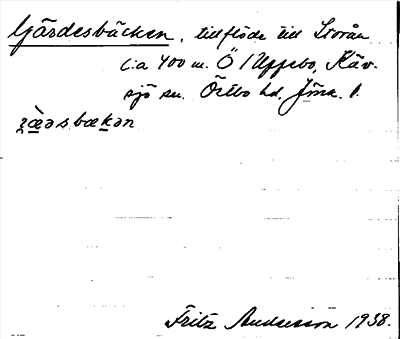 Gärdesbäcken, tillflöde till Storån
c:a 400 m. Ö / Uppebo, Käv-
sjö sn. Östbo hd. Jönk. l.
Fritz Andersson 1938.